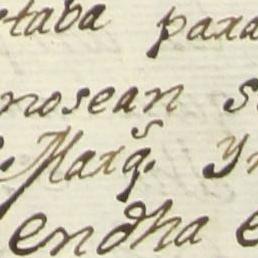 taba para
nosean s
Marq.s Yn
endha e